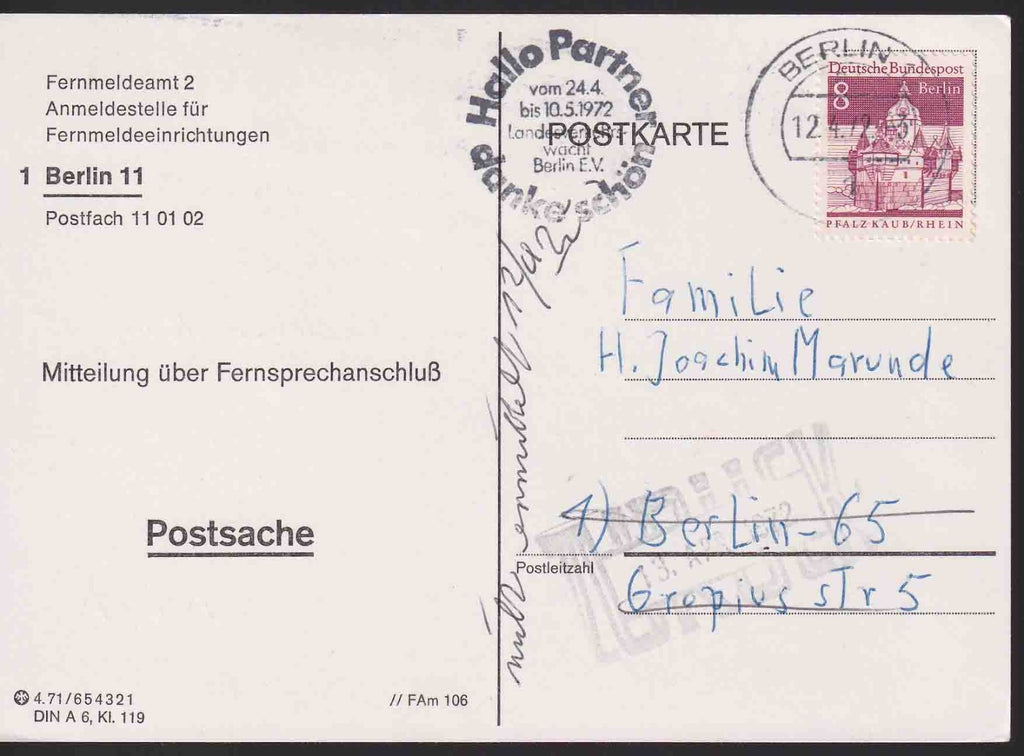 Fernmeldeamt 2
Anmeldestelle für
Fernmeldeeinrichtungen
1 Berlin 11
Postfach 11 01 02
Mitteilung über Fernsprechanschluß
Postsache
4.71/654321
DIN A 6, Kl. 119
// FAm 106
Hallo Partner
vom 24.4.
bis 10.5.1972
Landesverkehrs-
wacht
Berlin E.V.
danke schön
POSTKARTE
BERLIN
12.4.72
Deutsche Bundespost
8 Berlin
PFALZ KAUB/RHEIN
Familie
H. Joachim Marunde
1) Berlin-65
Postleitzahl
Gropius str 5
Zurück
13. APR. 1972